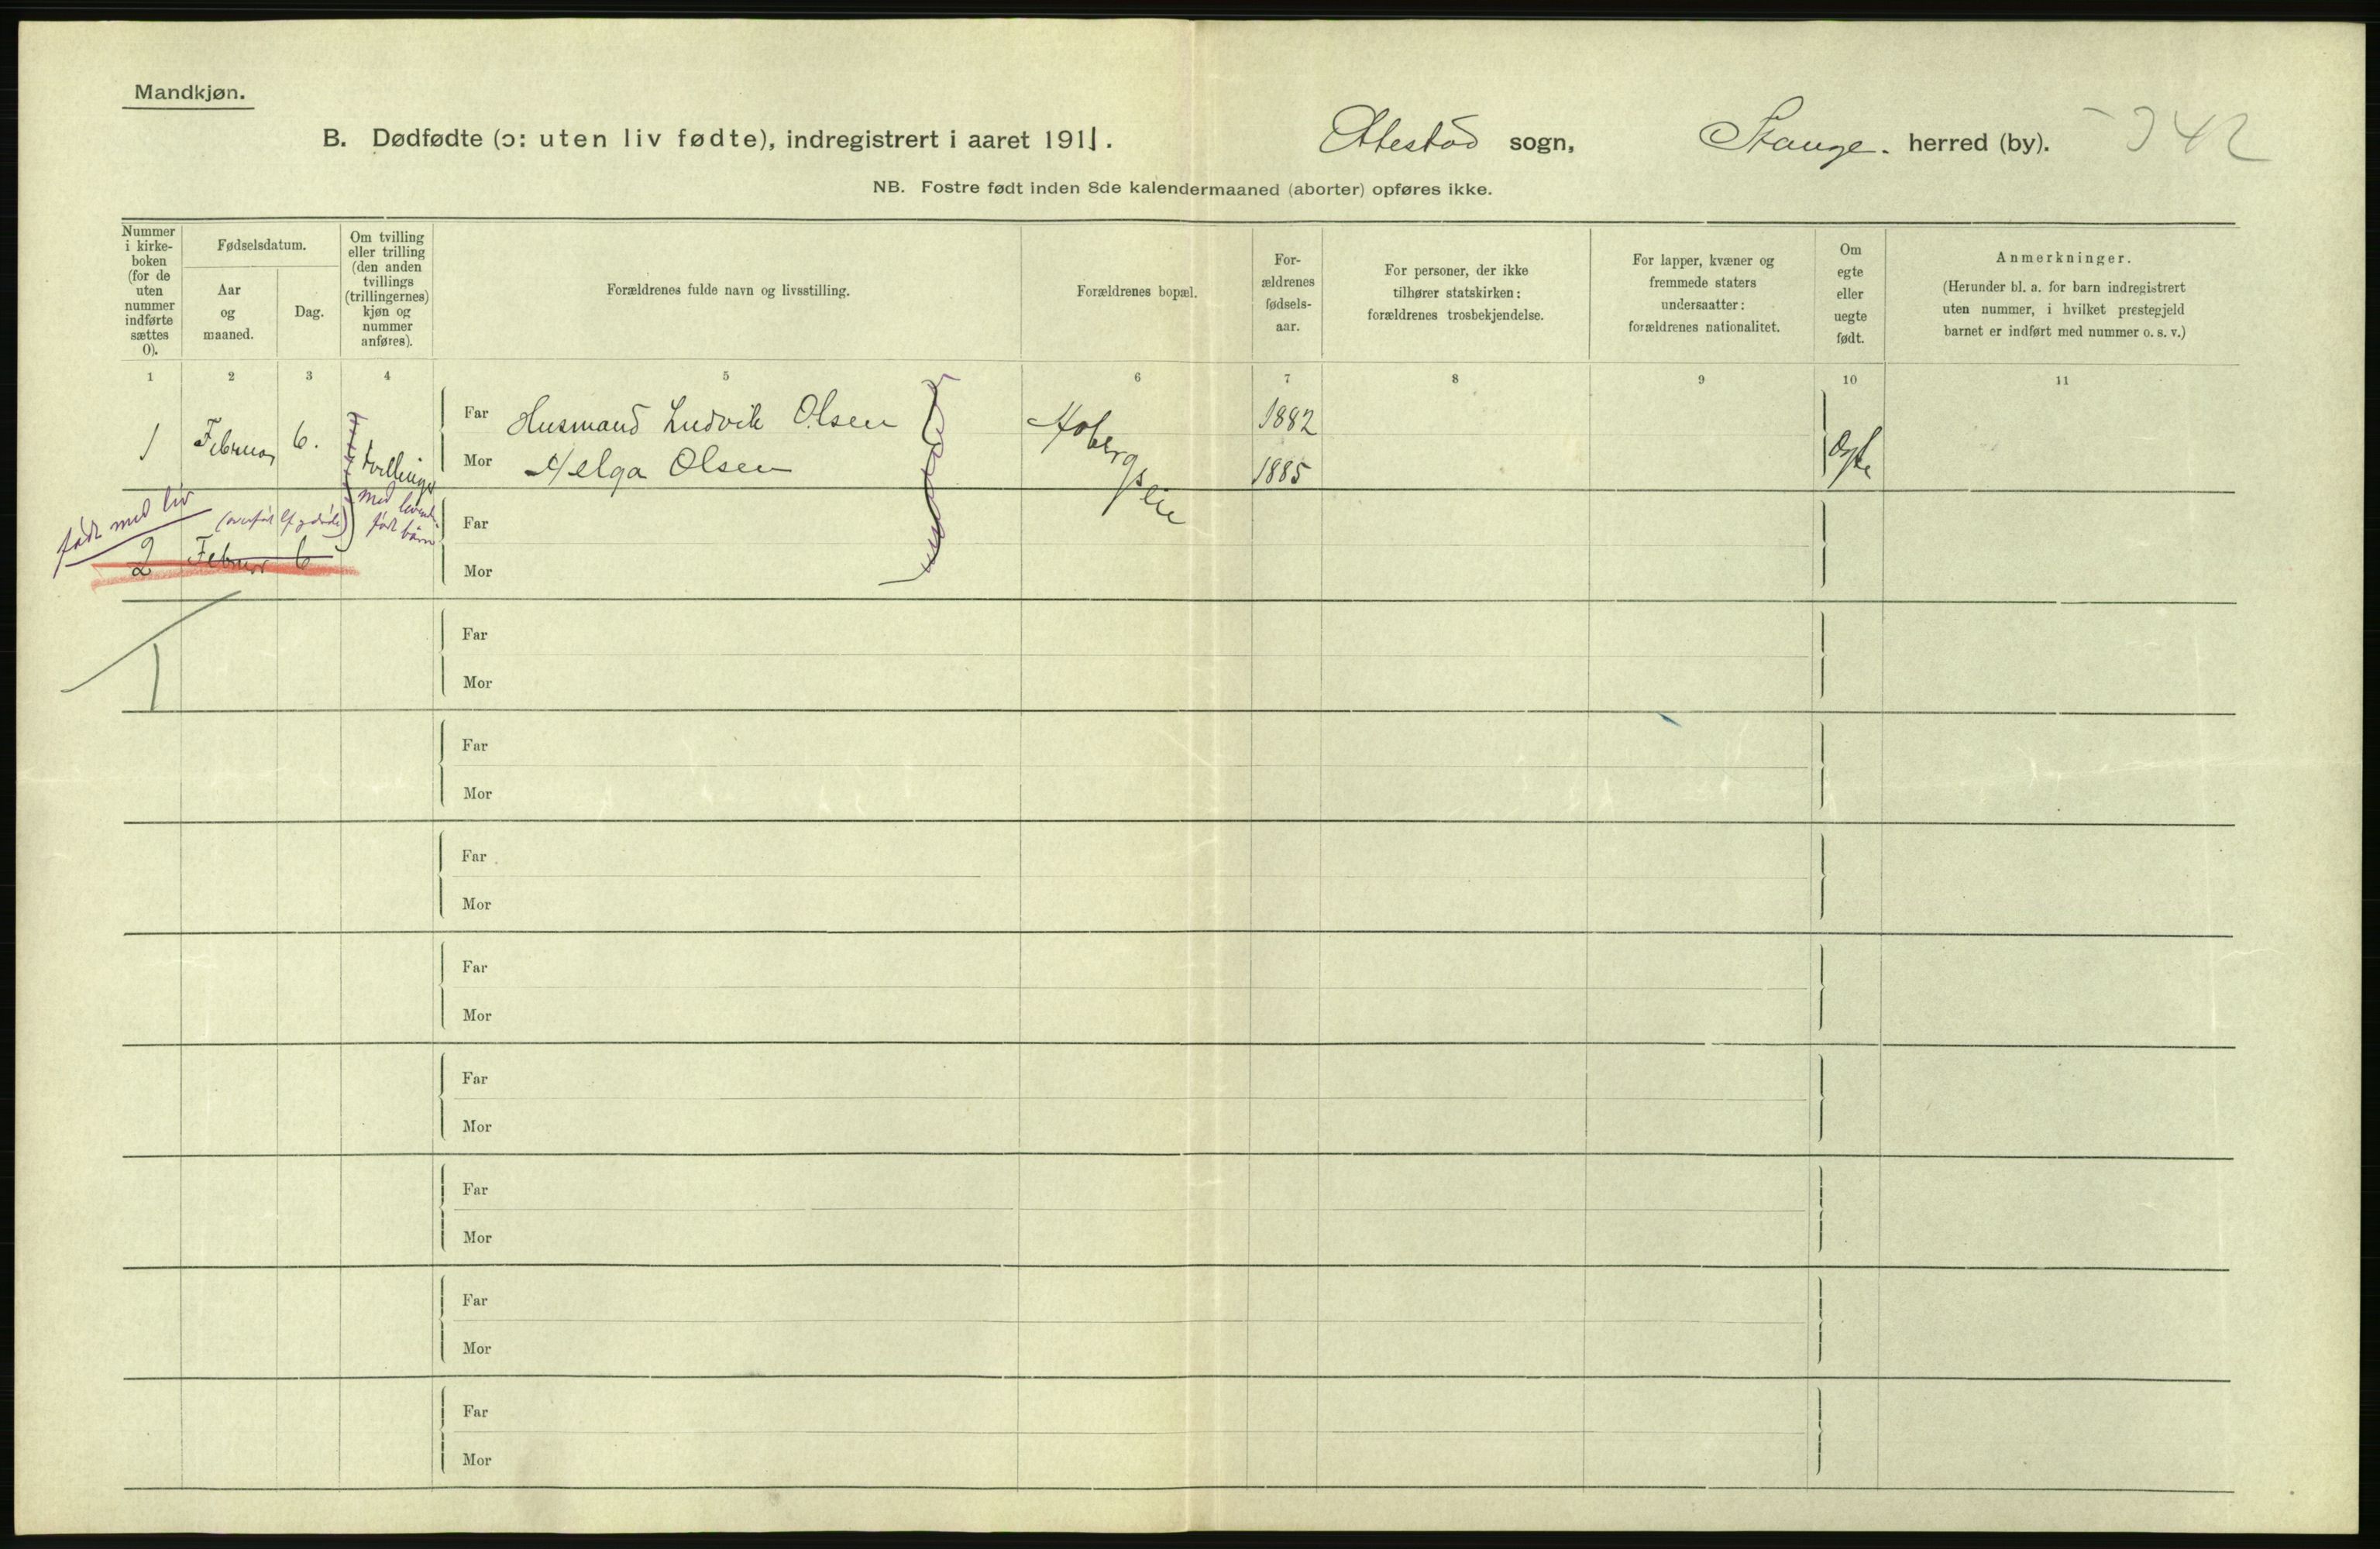 Mandkjøn.
B. Dødfødte (ɔ: uten liv fødte), indregistrert i aaret 1911. Ottestad sogn, Stange. herred (by). 342
NB. Fostre født inden 8de kalendermaaned (aborter) opføres ikke.
Nummer
i kirke-
boken
(for de
uten
nummer
indførte
sættes
0).
Fødselsdatum.
Aar
og
maaned.
Dag.
Om tvilling
eller trilling
(den anden
tvillings
(trillingernes)
kjøn og
nummer
anføres).
Forældrenes fulde navn og livsstilling.
Forældrenes bopæl.
For-
ældrenes
fødsels-
aar.
For personer, der ikke
tilhører statskirken:
forældrenes trosbekjendelse.
For lapper, kvæner og
fremmede staters
undersaatter:
forældrenes nationalitet.
Om
egte
eller
uegte
født.
Anmerkninger.
(Herunder bl. a. for barn indregistrert
uten nummer, i hvilket prestegjeld
barnet er indført med nummer o. s. v.)
1 2 3 4 5 6 7 8 9 10 11
1 Februar 6. tvillinger Far Husmand Ludvik Olsen 1882 Egte
Mor Helga Olsen 1885
født med liv
med levende
født barn
Far
2 Februar 6
Mor
Far
1
Mor
Far
Mor
Far
Mor
Far
Mor
Far
Mor
Far
Mor
Far
Mor
Far
Mor